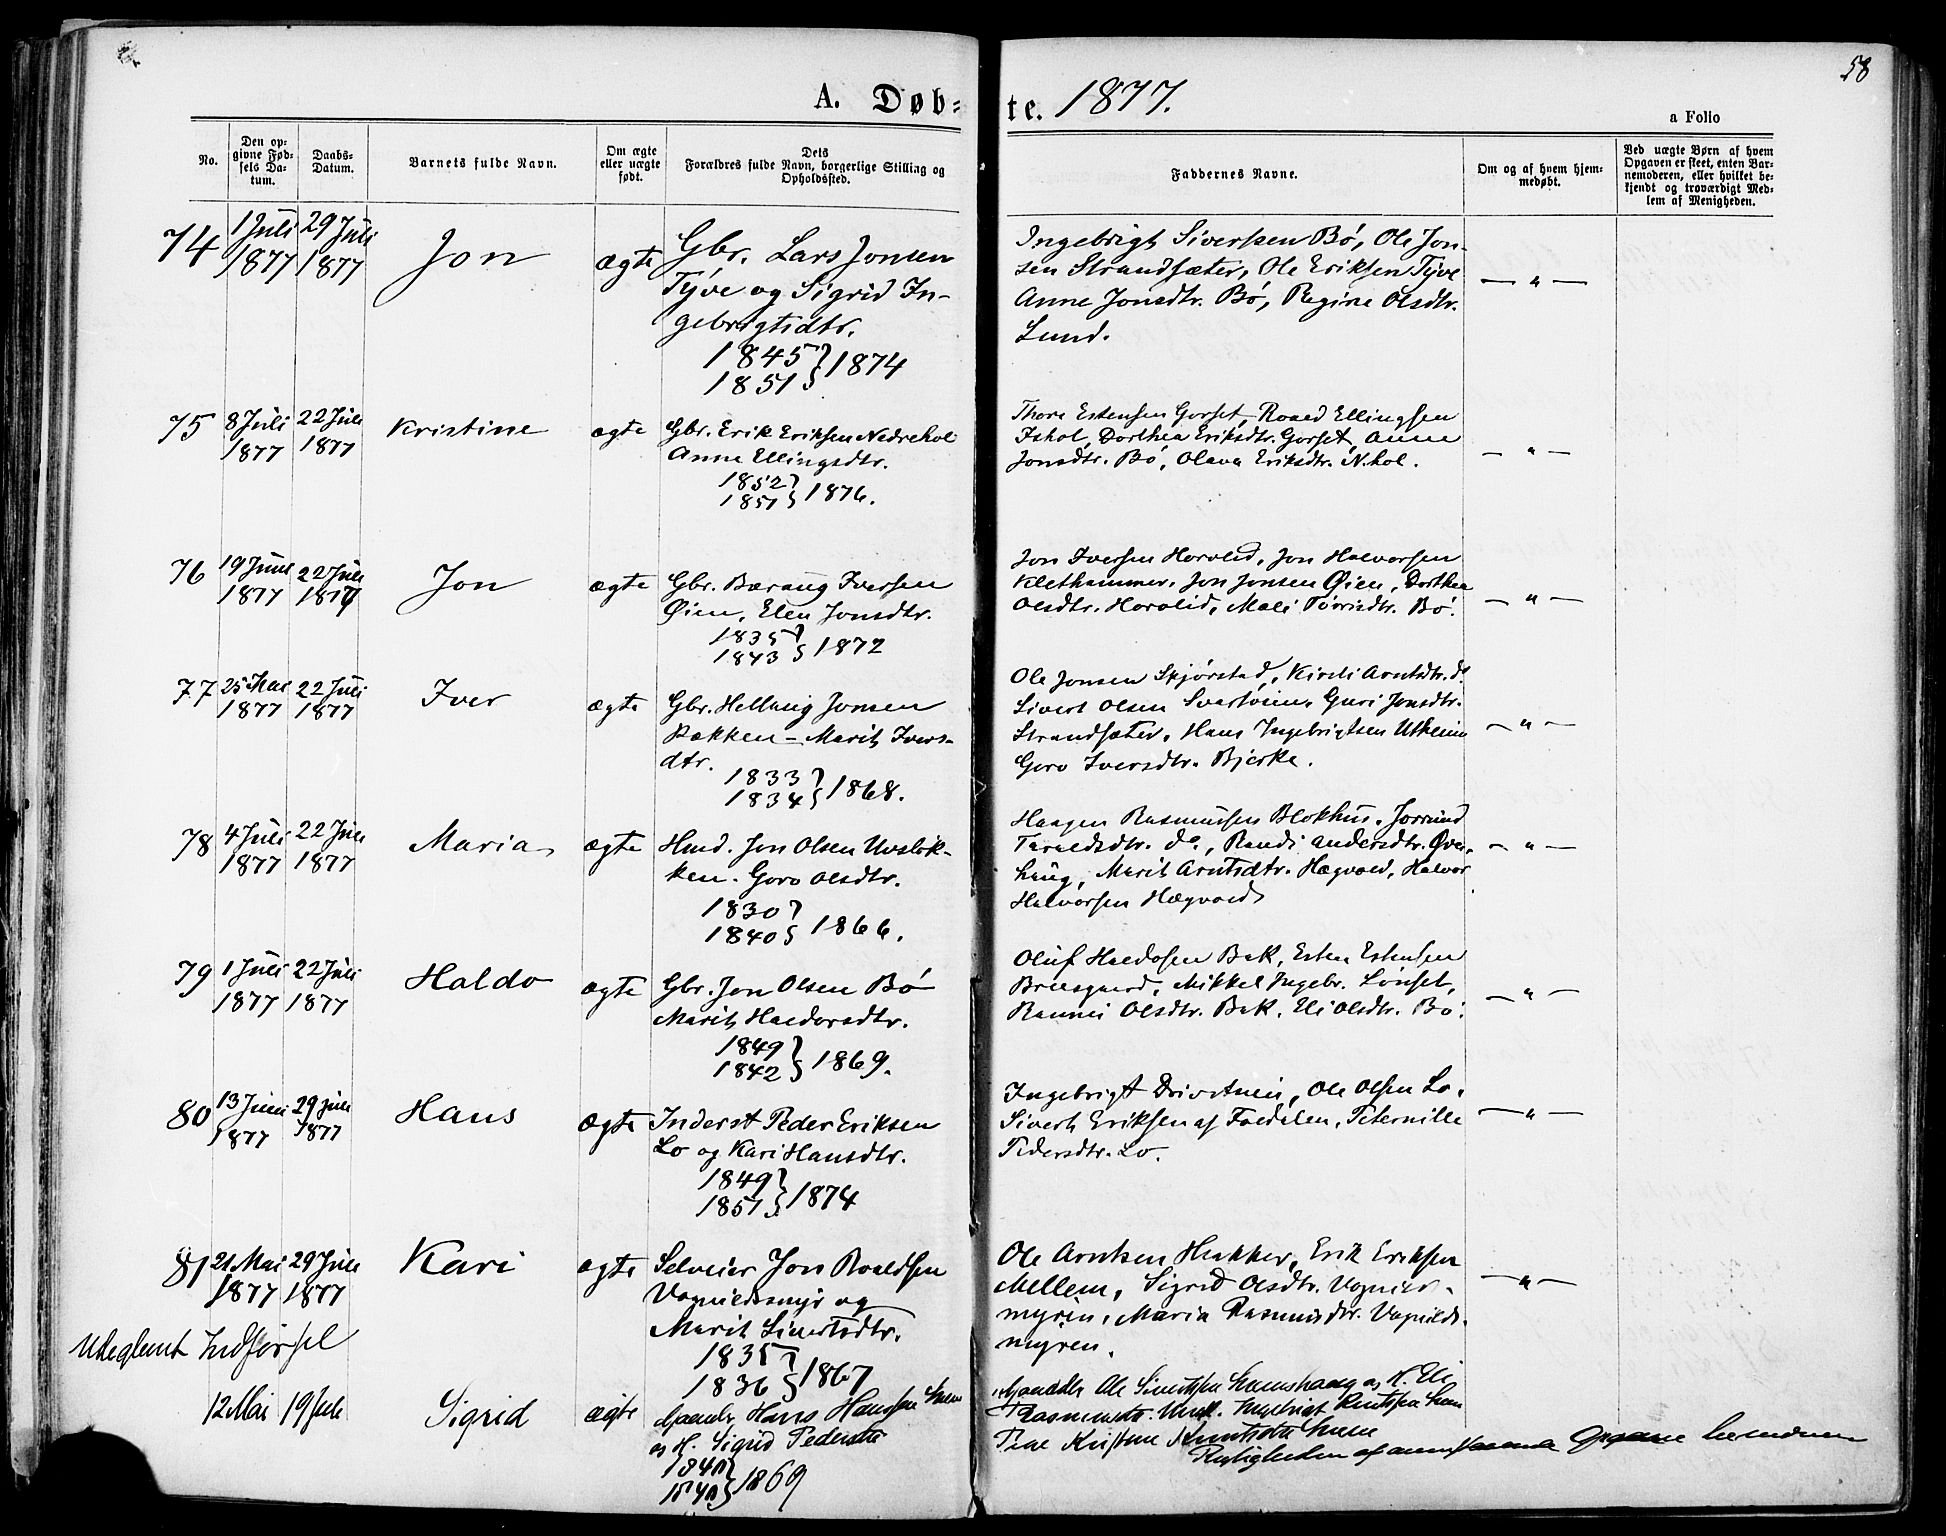 58
A. Døb= te. 1877.
a Folio
No.
Den op-
givne Fød-
sels Da-
tum.
Daabs-
Datum.
Barnets fulde Navn.
Om ægte
eller uægte
født.
Dets
Forældres fulde Navn, borgerlige Stilling og
Opholdssted.
Faddernes Navne.
Om og af hvem hjem-
medøbt.
Ved uægte Børn af hvem
Opgaven er skeet, enten Bar-
nemoderen, eller hvilket be-
kjendt og troværdigt Med-
lem af Menigheden.
74
1 Juli
1877
29 Juli
1877
Jon
ægte
Gbr. Lars Jonsen
Tyve og Sigrid In-
gebrigtsdtr.
1845 } 1874
1851
Ingebrigt Sivertsen Bö, Ole Jon-
sen Strandsæter, Ole Eriksen Tyve
Anne Jonsdtr. Bö, Regine Olsdtr.
Lund.
— " —
75
8 Juli
1877
22 Juli
1877
Kristine
ægte
Gbr. Erik Eriksen Nedrehol
Anne Ellingsdtr.
1852 } 1876.
1851
Thore Estensen Gorset, Roaed Ellingsen
Ishol, Dorthea Eriksdtr. Gorset, Anne
Jonsdtr. Bö, Olava Eriksdtr. N.hol.
— " —
76
19 Juni
1877
22 Juli
1877
Jon
ægte
Gbr. Bæraug Iversen
Øien, Elen Jonsdtr.
1835 } 1872
1843
Jon Iversen Horvlid, Jon Halvorsen
Klethammer, Jon Jonsen Øien, Dorthea
Olsdtr. Horvlid, Mali Törrisdtr. Bö.
— " —
77
25 Mai
1877
22 Juli
1877
Iver
ægte
Gbr. Helluig Jonsen
Bakken — Marit Ivers-
dtr.
1833 } 1868.
1834
Ole Jonsen Skjörstad, Kirsti Arntsdtr. do.
Sivert Olsen Svartöien, Guri Jonsdtr.
Strandsæter, Hans Ingebrigtsen Utheim
Goro Iversdtr. Bjerke.
— " —
78
4 Juli
1877
22 Juli
1877
Maria
ægte
Hmd. Jon Olsen Uvslök-
ken. Goro Olsdtr.
1830 } 1866.
1840
Haagen Rasmussen Blokhus, Jorund
Taraldsdtr. do, Randi Andersdtr. Øver-
haug, Marit Arntsdtr. Hægvald, Halvor
Halvorsen Hægvald
— " —
79
1 Juli
1877
22 Juli
1877
Haldo
ægte
Gbr. Jon Olsen Bö
Marit Haldorsdtr.
1849 } 1869.
1842
Oluf Haldosen Bak, Esten Estensen
Bruusgaard, Mikkel Ingebr. Lönset,
Rannei Olsdtr. Bak, Eli Olsdtr. Bö.
— " —
80
13 Juni
1877
29 Juli
1877
Hans
ægte
Inderst Peder Eriksen
Lo og Kari Hansdtr.
1849 } 1874
1851
Ingebrigt Drivstuen, Ole Olsen Lo,
Sivert Eriksen af Foldalen, Peternille
Pedersdtr. Lo.
— " —
81
21 Mai
1877
29 Juli
1877
Kari
ægte
Selveier Jon Roaldsen
Vognildsmyr og
Marit Sivertsdtr.
1835 } 1867
1836
Ole Arntsen Hakker, Erik Eriksen
Mellem, Sigrid Olsdtr. Vognilds-
myren, Maria Rasmusdtr. Vognilds-
myren.
— " —
Uteglemt Indførsel
12 Mai
19 Juli
Sigrid
ægte
Gaardbr. Hans Hanssen
og H. Sigrid Pedersdtr
1869
Gaardbr Ole Sivertsen og K. Eli
Rasmusdtr. Ingebrigt Knutsen
Pige Kristine Knutsdtr
Rigtigheden af